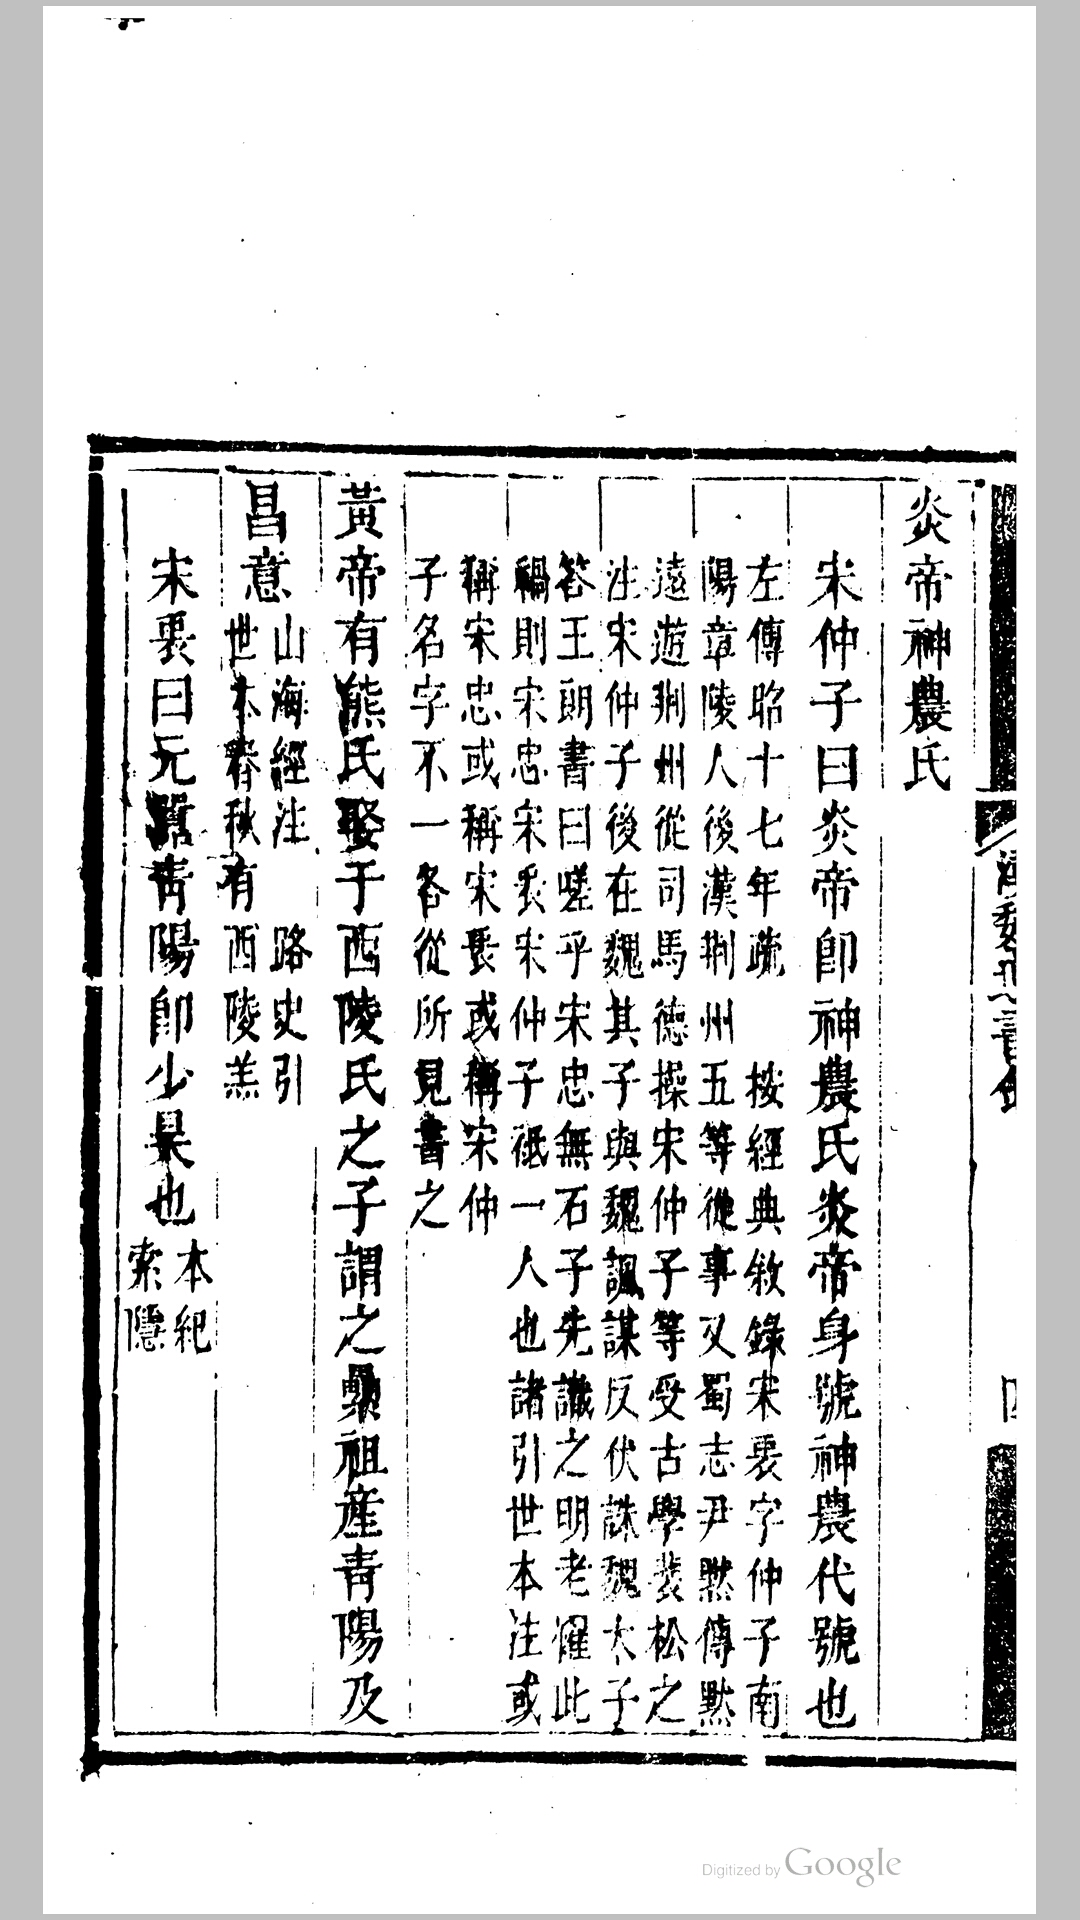 炎帝神農氏
宋仲子曰炎帝卽神農氏炎帝身號神農代號也
左傳昭十七年疏　按經典敘錄宋衷字仲子南
陽章陵人後漢荆州五等從事又蜀志尹默傳默
遠遊荆州從司馬德操宋仲子等受古學裴松之
注宋仲子後在魏其子與魏諷謀反伏誅魏太子
答王朗書曰嗟乎宋忠無石子先識之明老罹此
禍則宋忠宋衷宋仲子祗一人也諸引世本注或
稱宋忠或稱宋衷或稱宋仲
子名字不一各從所見書之
黃帝有熊氏娶于西陵氏之子謂之纍祖產青陽及
昌意
山海經注　路史引
世本春秋有西陵羔
宋衷曰元囂青陽卽少昊也
本紀
索隱
漢魏遺書鈔
四
Digitized by Google